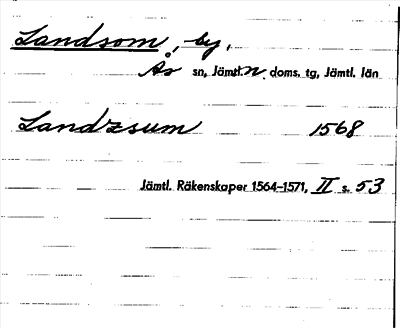 Landsom, by,
Ås sn, Jämtl. n. doms. tg, Jämtl. län
Landzsum 1568
Jämtl. Räkenskaper 1564-1571, II s. 53